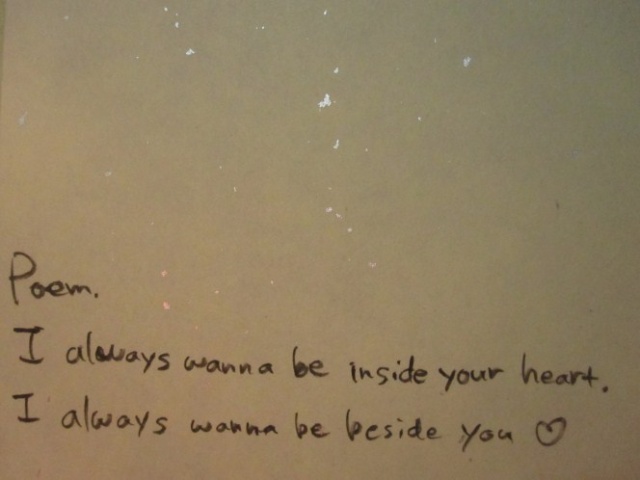 Poem.
I always wanna be inside your heart.
I always wanna be beside you ♡